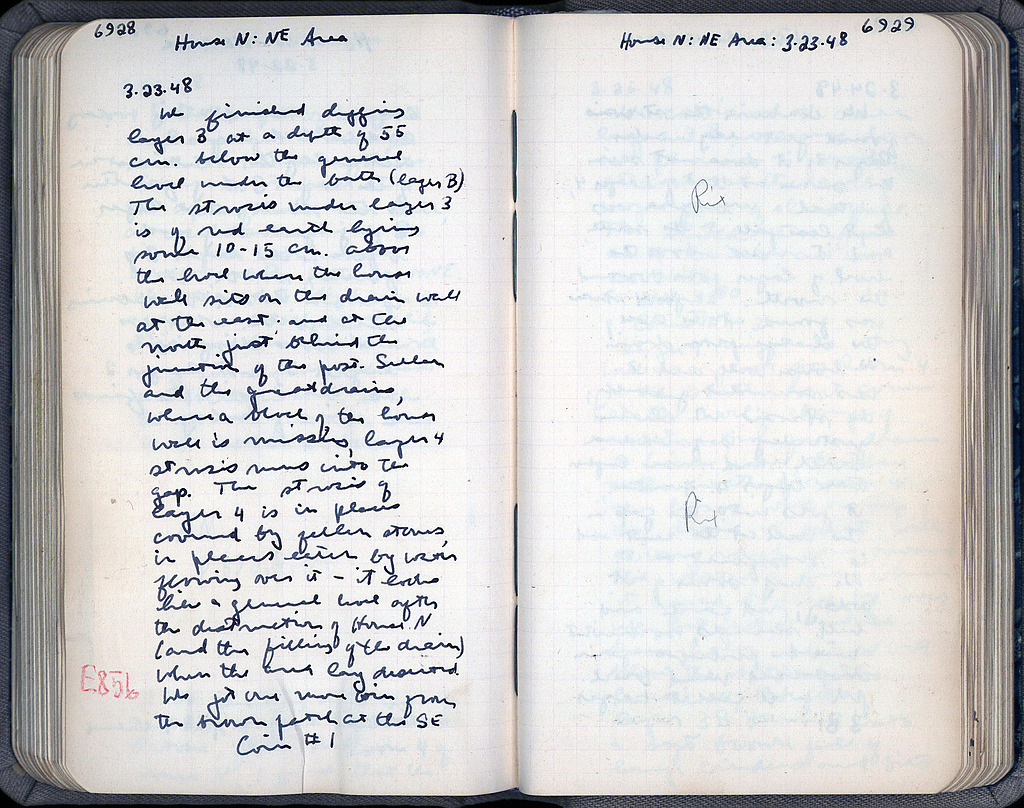 6928
House N: NE Area
3.23.48
We finished digging
layer 3 at a depth of 55
cm. below the general
level under the bath (layer B)
The strosis under layer 3
is of red earth lying
some 10-15 cm. above
the level where the house
wall sits on the drain wall
at the east; and at the
north just behind the
junction of the post-Sullan
and the great drains,
where a block of the house
wall is missing, layer 4
strosis runs into the
gap. The strosis of
layer 4 is in places
covered by fallen stones,
in places eaten by water
flowing over it – it looks
like a general level after
the destruction of House N
(and the filling of the drain)
when the area lay deserted
We got one more coin from
the brown patch at the SE
Coin #1
E856
6929
House N: NE Area: 3.23.48
Pix
Pix